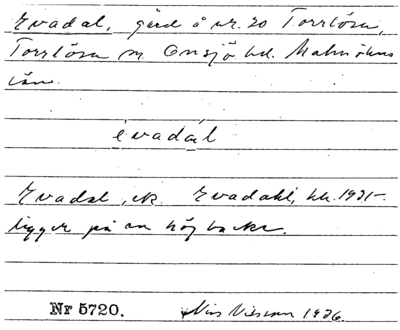 Evadal, gård å nr. 20 Torrlösa,
Torrlösa sn. Onsjö hd. Malmöhus
län.
èvadál
Evadal, ek. Evadahl, kk. 1931-
ligger på en hög backe.
Nr 5720. Nils Nilsson 1936.